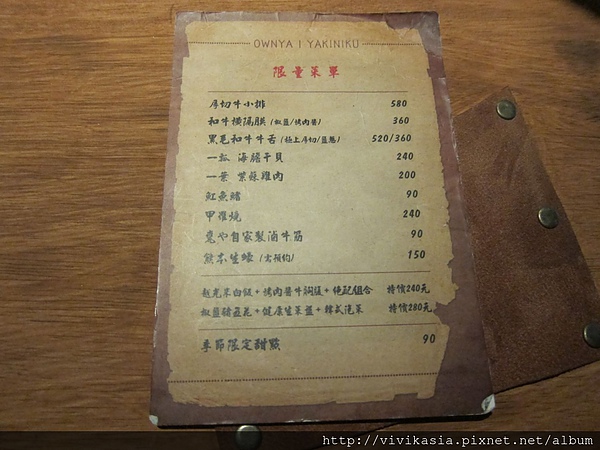 OWNYA | YAKINIKU
限量菜單
厚切牛小排 580
和牛橫隔膜 (椒鹽/烤肉醬) 360
黑毛和牛牛舌 (極上厚切/鹽蔥) 520/360
一瓢 海膽干貝 240
一葉 紫蘇雞肉 200
魟魚鰭 90
甲羅燒 240
覓や自家製滷牛筋 90
熊本生蠔 (需預約) 150
越光米白飯+烤肉醬牛胸腹+絕配組合 特價240元
椒鹽豬五花+健康生菜盤+韓式泡菜 特價280元
季節限定甜點 90
http://vivikasia.pixnet.net/album